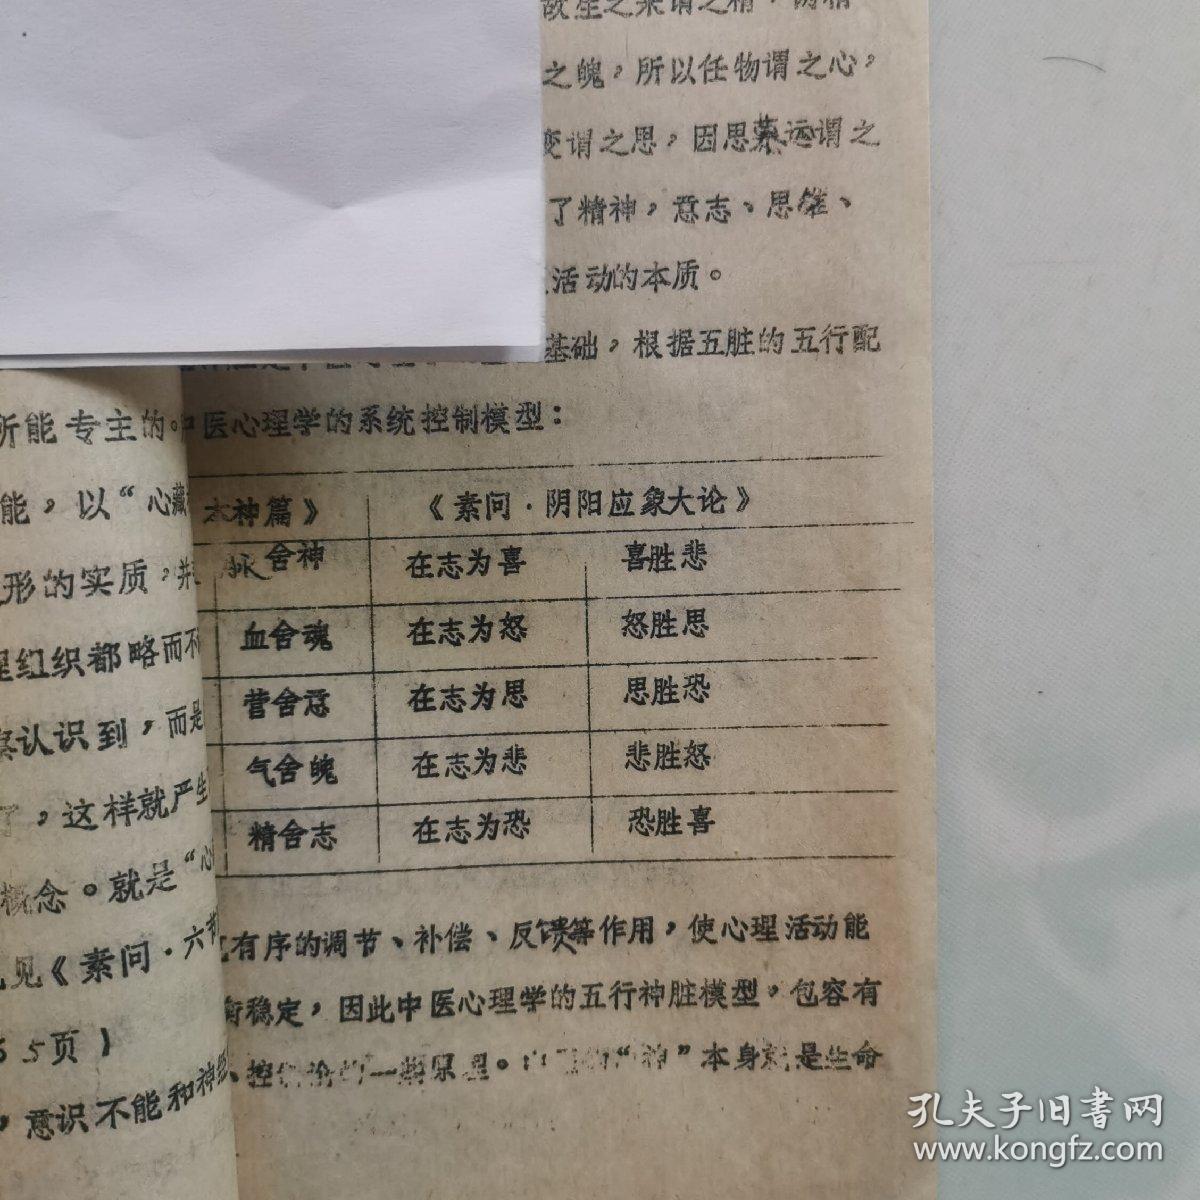 故生之来谓之精，两精
之魄，所以任物谓之心，
变谓之思，因思慕远谓之
了精神，意志、思维、
活动的本质。
基础，根据五脏的五行配
中医心理学的系统控制模型：
本神篇》 《素问·阴阳应象大论》
脉舍神 在志为喜 喜胜悲
血舍魂 在志为怒 怒胜思
营舍意 在志为思 思胜恐
气舍魄 在志为悲 悲胜怒
精舍志 在志为恐 恐胜喜
有序的调节、补偿、反馈等作用，使心理活动能
衡稳定，因此中医心理学的五行神脏模型，包容有
控 一些原理。 “神”本身就是生命
所能专主的。
能，以“心藏
形的实质，并
理组织都略而不
认识到，而是
了，这样就产生
概念。就是“心
见《素问·六节
5页）
，意识不能和神经
孔夫子旧书网
www.kongfz.com